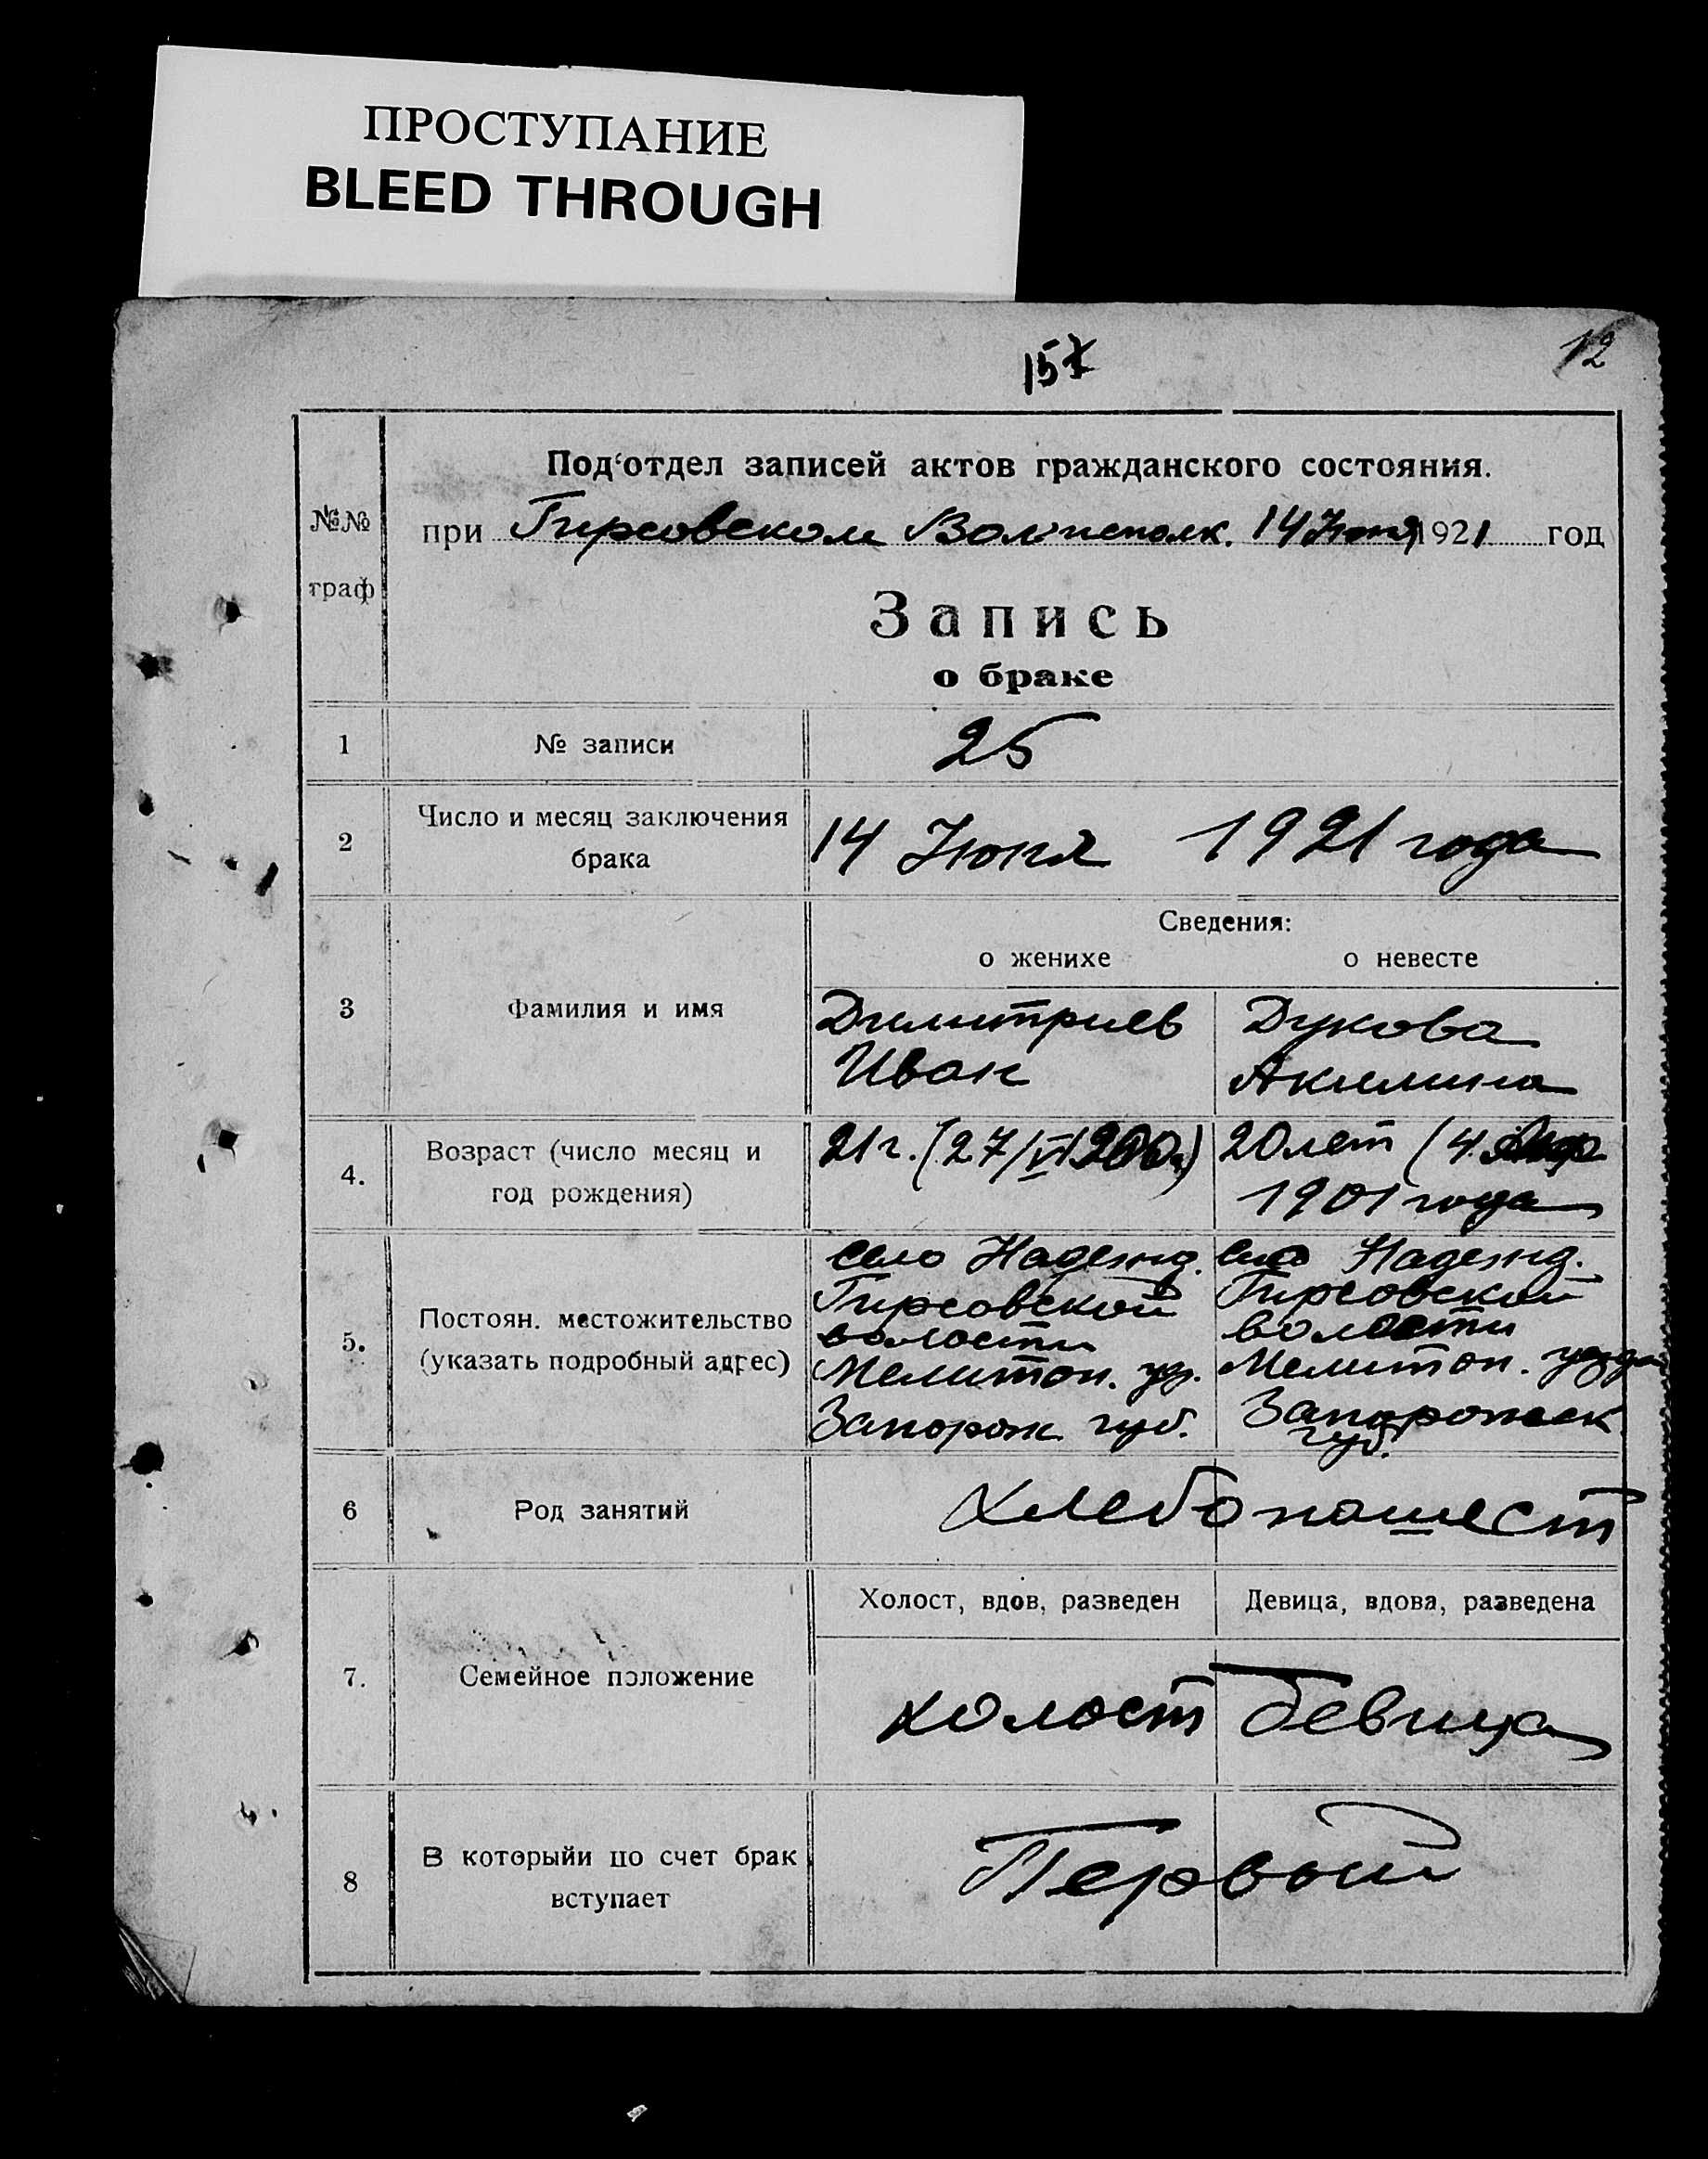 ПРОСТУПАНИЕ
BLEED THROUGH
157
12
Под‘отдел записей актов гражданского состояния.
№№
граф
при Гирсовском Вол исполк. 14 Июня 1921 год
Запись
о браке
1 № записи 25
2 Число и месяц заключения брака 14 Июня 1921 года
Сведения:
о женихе о невесте
3 Фамилия и имя
Димитриев Дукова
Иван Акилина
4. Возраст (число месяц и год рождения)
21 г. (27/VI 20 лет (4
1901 года
5. Постоян. местожительство (указать подробный адрес)
село Надежд. село Надежд.
Гирсовской Гирсовской
волости волости
Мелитоп. уз. Мелитоп. уезда
Запорож губ. Запорожск
губ.
6 Род занятий Хлебопашест
Холост, вдов, разведен Девица, вдова, разведена
7. Семейное положение холост девица
8 В которыйи по счет брак вступает Первый